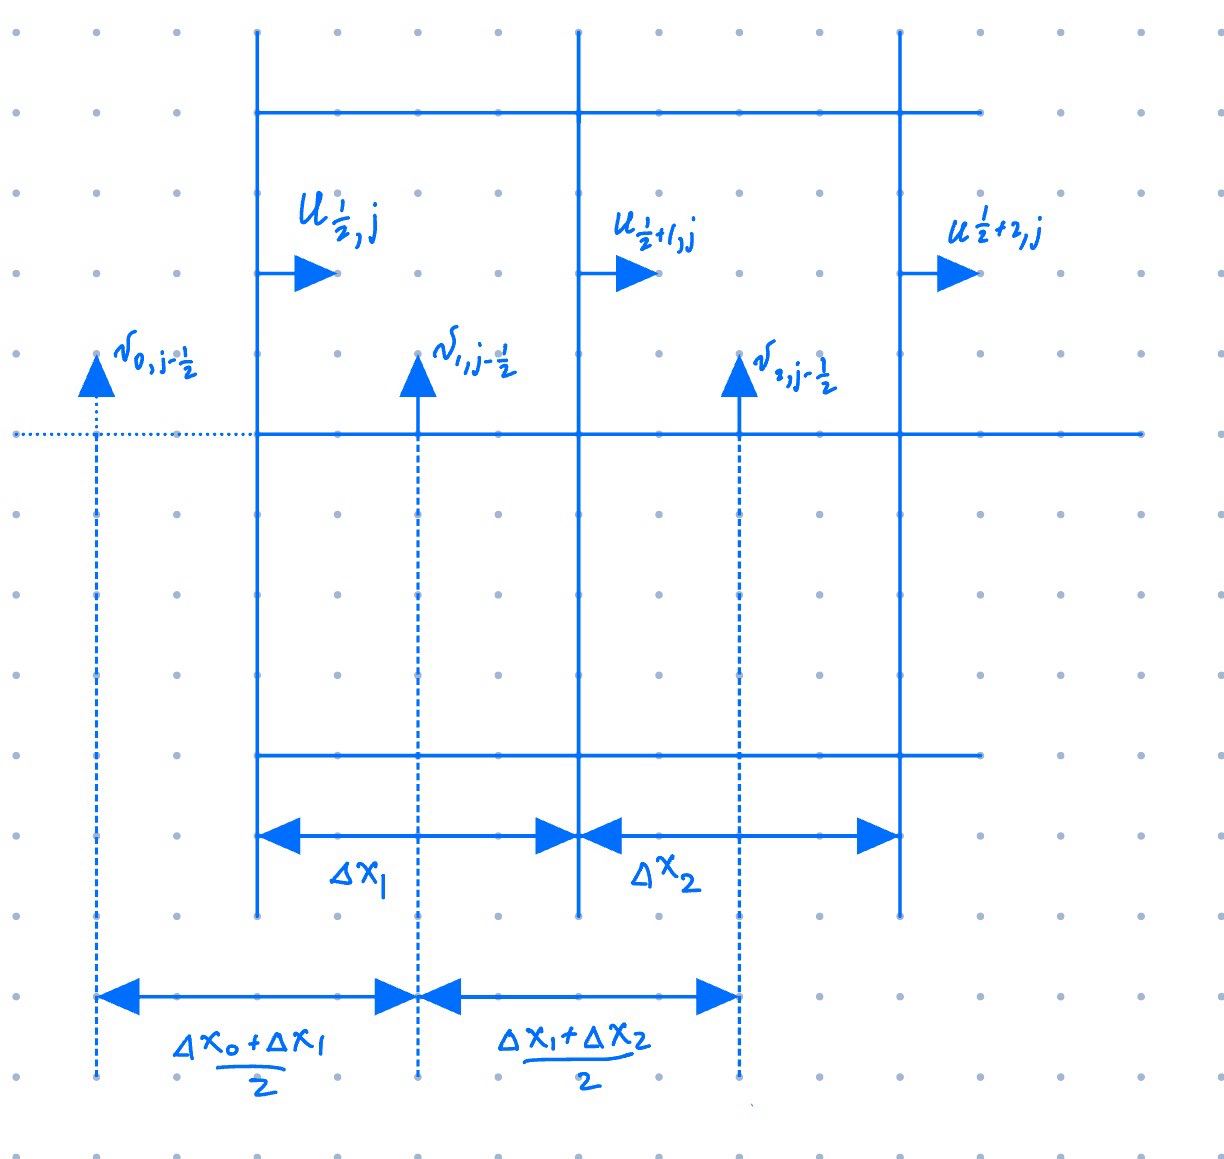 u_{\frac{1}{2},j}
u_{\frac{1}{2}+1,j}
u^{\frac{1}{2}+2,j}
v_{0,j-\frac{1}{2}}
v_{1,j-\frac{1}{2}}
v_{2,j-\frac{1}{2}}
Δx_1
Δx_2
\frac{Δx_0+Δx_1}{2}
\frac{Δx_1+Δx_2}{2}